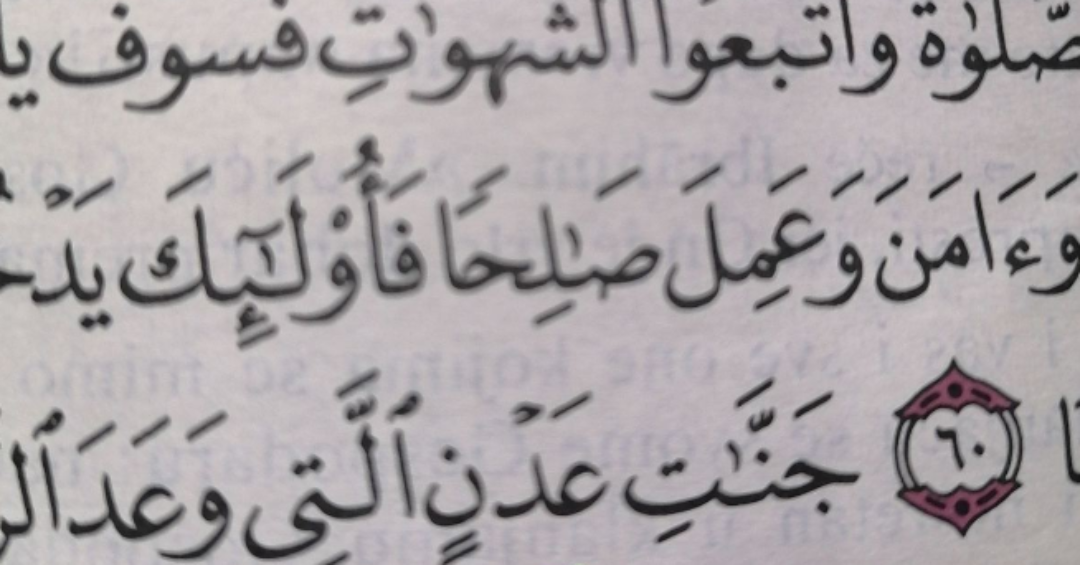 صَّلَوٰةَ وَٱتَّبَعُوا۟ ٱلشَّهَوَٰتِ فَسَوْفَ يَ
وَءَامَنَ وَعَمِلَ صَٰلِحًا فَأُو۟لَٰٓئِكَ يَدْخُ
ا ٦٠ جَنَّٰتِ عَدْنٍ ٱلَّتِى وَعَدَ ٱلر